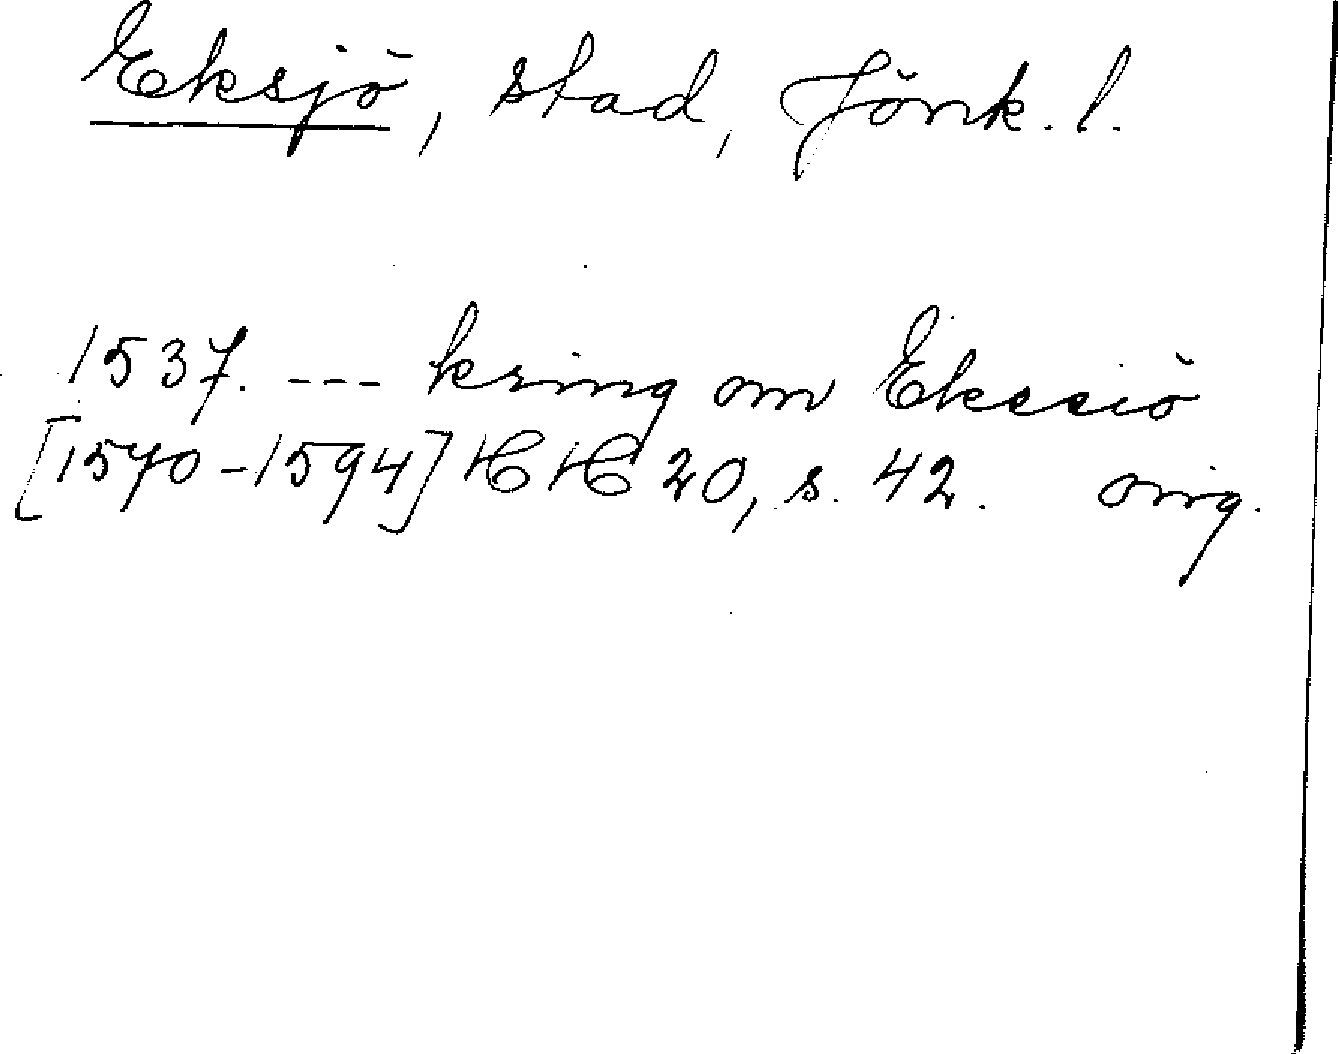 Eksjö, stad, Jönk. l.
1537. --- kring om Ekssiö
[1570-1594] HH 20, s. 42. orig.